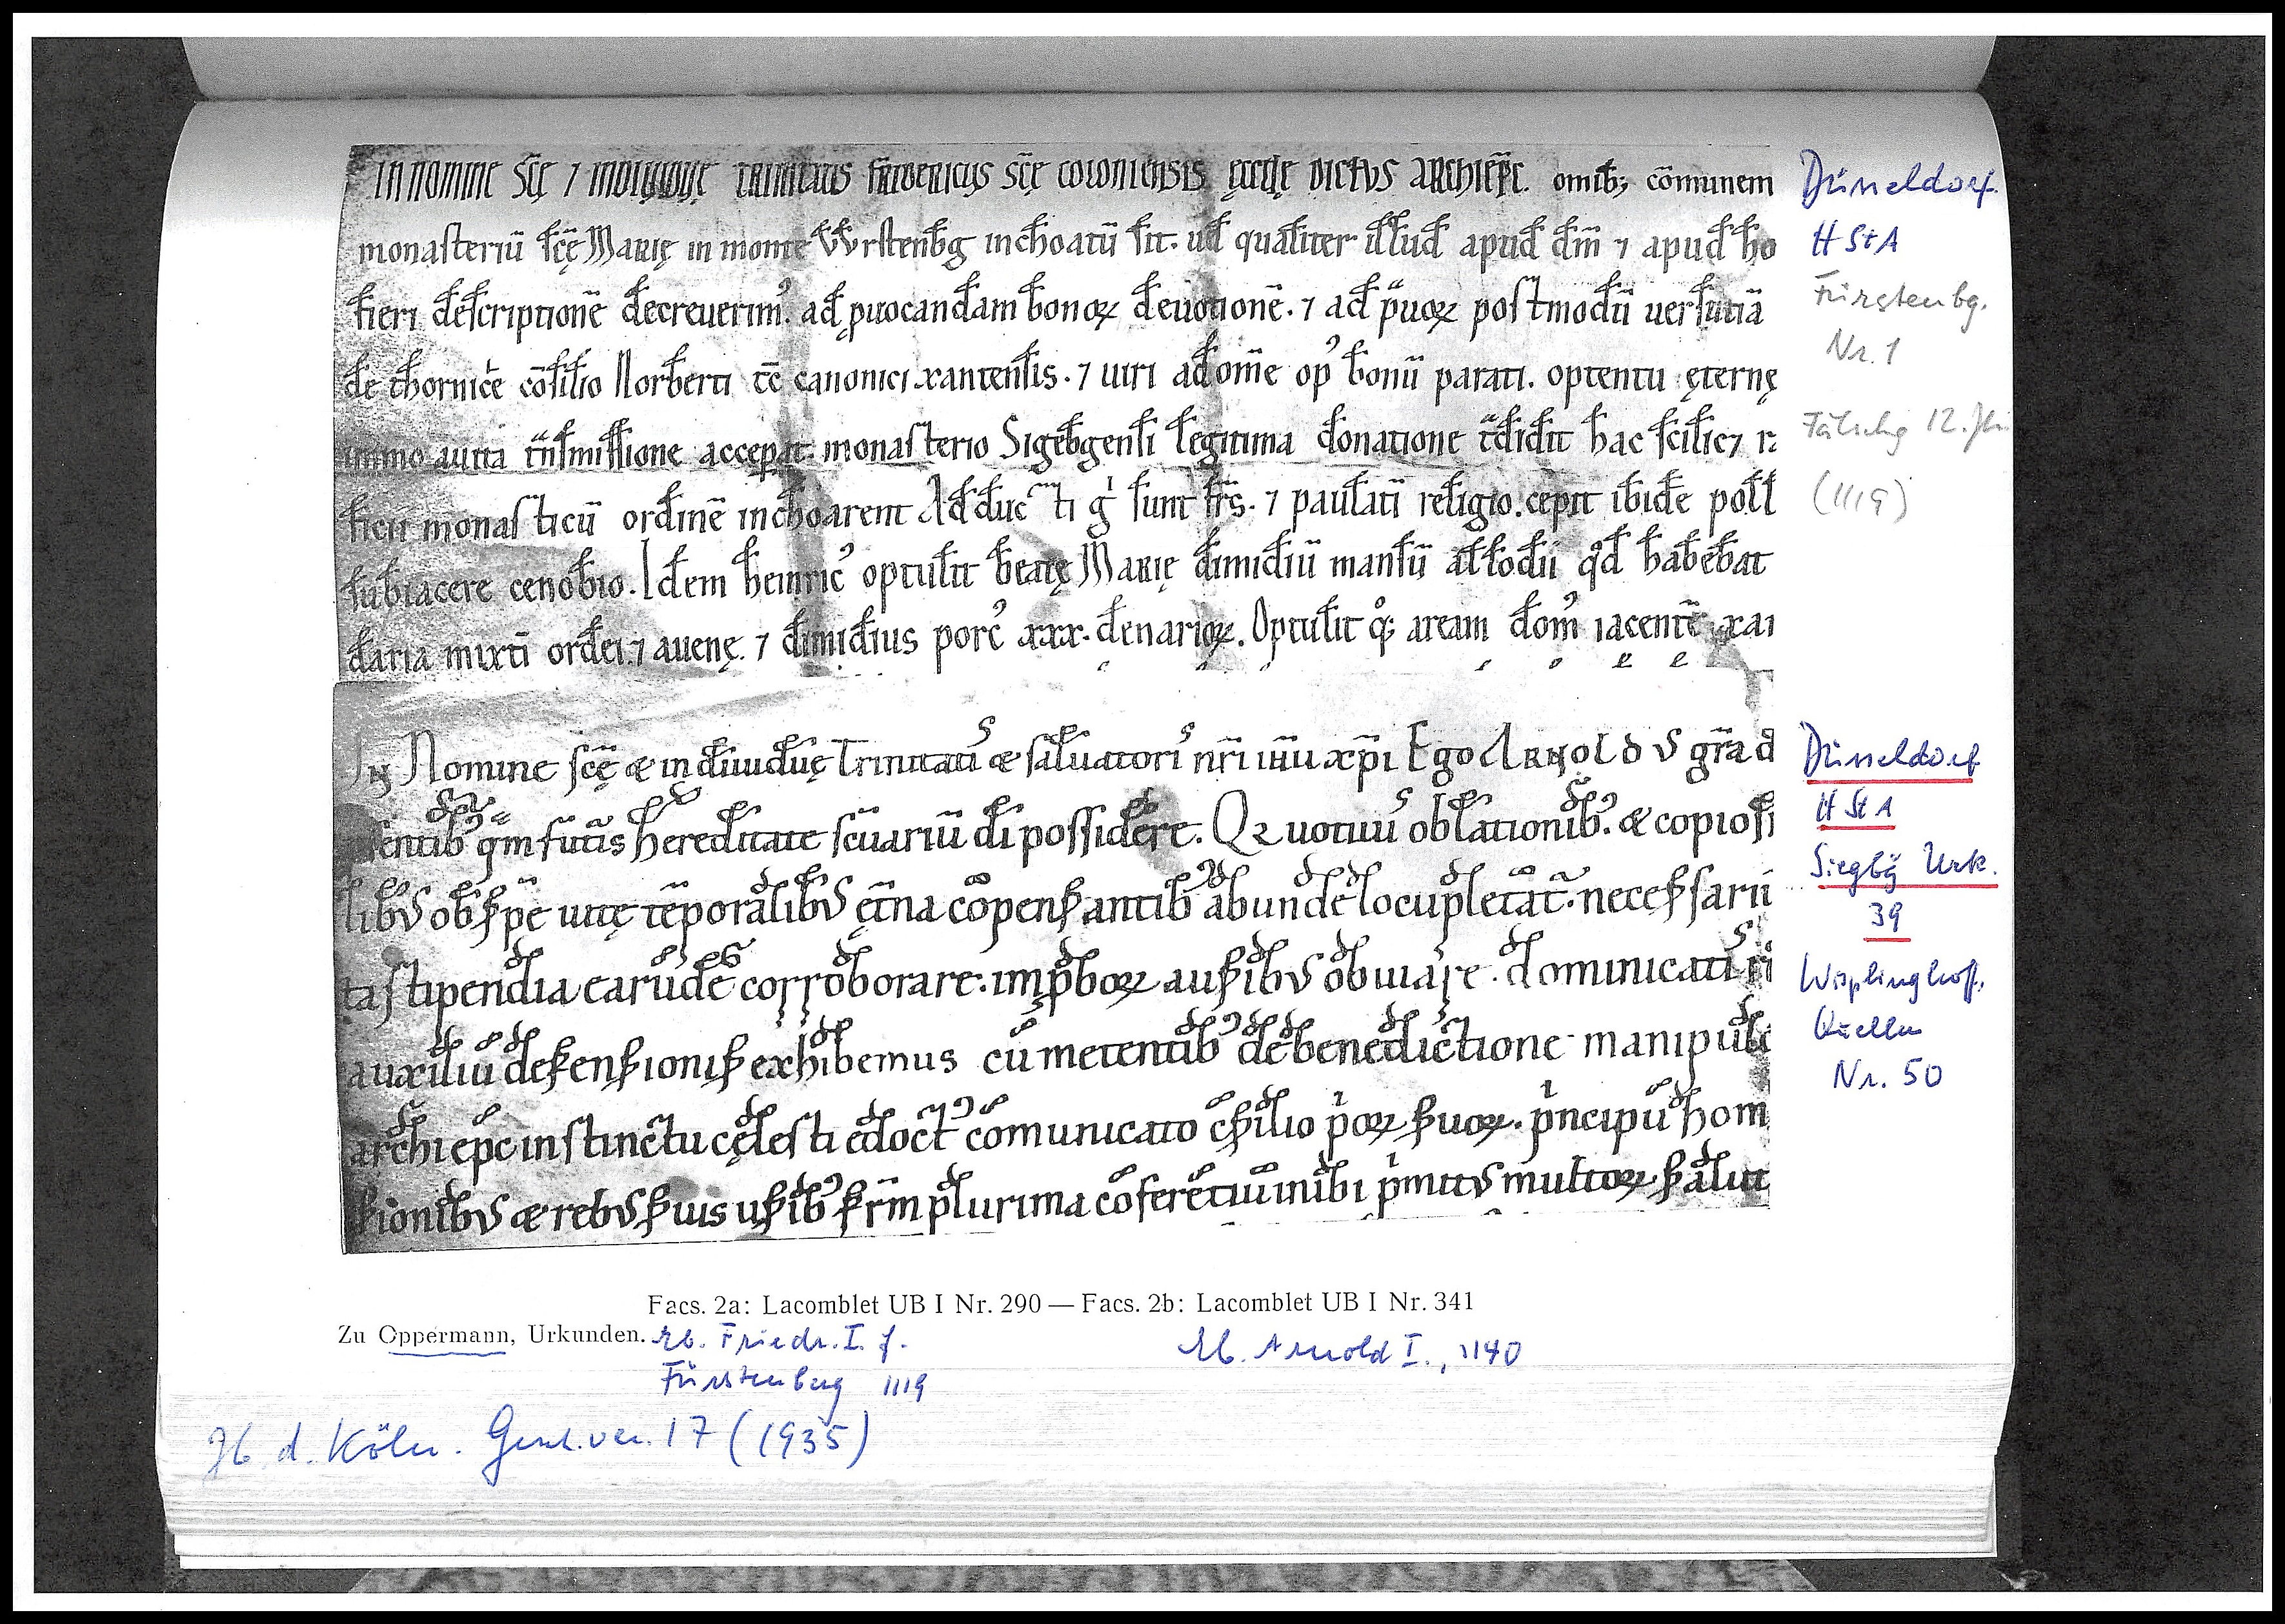 IN NOMINE SC̄Ę ⁊ INDIVIDVĘ TRINITATIS FRIDERICUS SC̄Ę COLONIENSIS ĘCCLĘ DICTVS ARCHIEP̄C. omib; cōmunem
monasteriū scę̄ MARIĘ in monte VVrstenb̄g inchoatū sit. ul̄ qualiter illud apud dm̄ ⁊ apud ho
fieri descriptionē decreuerim᾽. ad ꝓuocandam bonoꝝ deuotionē. ⁊ ad prauoꝝ postmodū uersutiā
de thornice cōsilio Norberti tc̄ canonici xantensis. ⁊ uiri ad om̄e op᾽ bonū parati. optentu ęternę
immo auita trāsmissione acceperat monasterio Sigeb̄gensi legitima donatione tradidit hac scilic⁊
ticū monasticū ordinē inchoarent Adducti g̊ sunt frs̄. ⁊ paulatī religio cepit ibidē poll
subiacere cenobio. Idem heinric᾽ optulit beatę MARIĘ dimidiū mansū allodii qd̄ habebat
daria mixti ordei ⁊ auenę. ⁊ dimidius porc᾽ xxx. denarioꝝ. Optulit q̊; aream dom᾽ iacentē xan
IN Nomine scę̄ æ indiuiduę Trinitati᾽ æ saluatori᾽ nr̄i ihū xp̄i Ego ARNOLDVS gr̄a d
entib᾽ qm̄ futīs hereditate scūariū di possidere. Qꝛ uotiuis oblationib᾽. æ copiosi
libus ob spē uitę tēporalibus ęt̄na cōpensantib᾽ abunde locupletāt᾽. necessarii
ta stipendia earūdē corroborare. imp̄boꝝ ausibus obuiare. dominicati᾽
auxiliū defensionis exhibemus cū metentib᾽ de benedictione manipul
archiepc̄ instinctu cęlesti edoct᾽ cōmunicato cōsilio p̄oꝝ suoꝝ. p̄ncipū hom
sionibus æ rebus suis usib᾽ frm̄ plurima cōferētiū inibi p̄mitus multoꝝ salut
Düsseldorf
H St A
Fürstenbg.
Nr. 1
Fälschg 12. Jh.
(1119)
Düsseldorf
H St A
Siegbg Urk.
39
Wisplinghoff,
Quellen
Nr. 50
Facs. 2a: Lacomblet UB I Nr. 290 — Facs. 2b: Lacomblet UB I Nr. 341
Zu Oppermann, Urkunden. Eb. Friedr. I. f.
Fürstenberg 1119
Eb. Arnold I., 1140
Jb. d. Köln. Gesch.ver. 17 (1935)